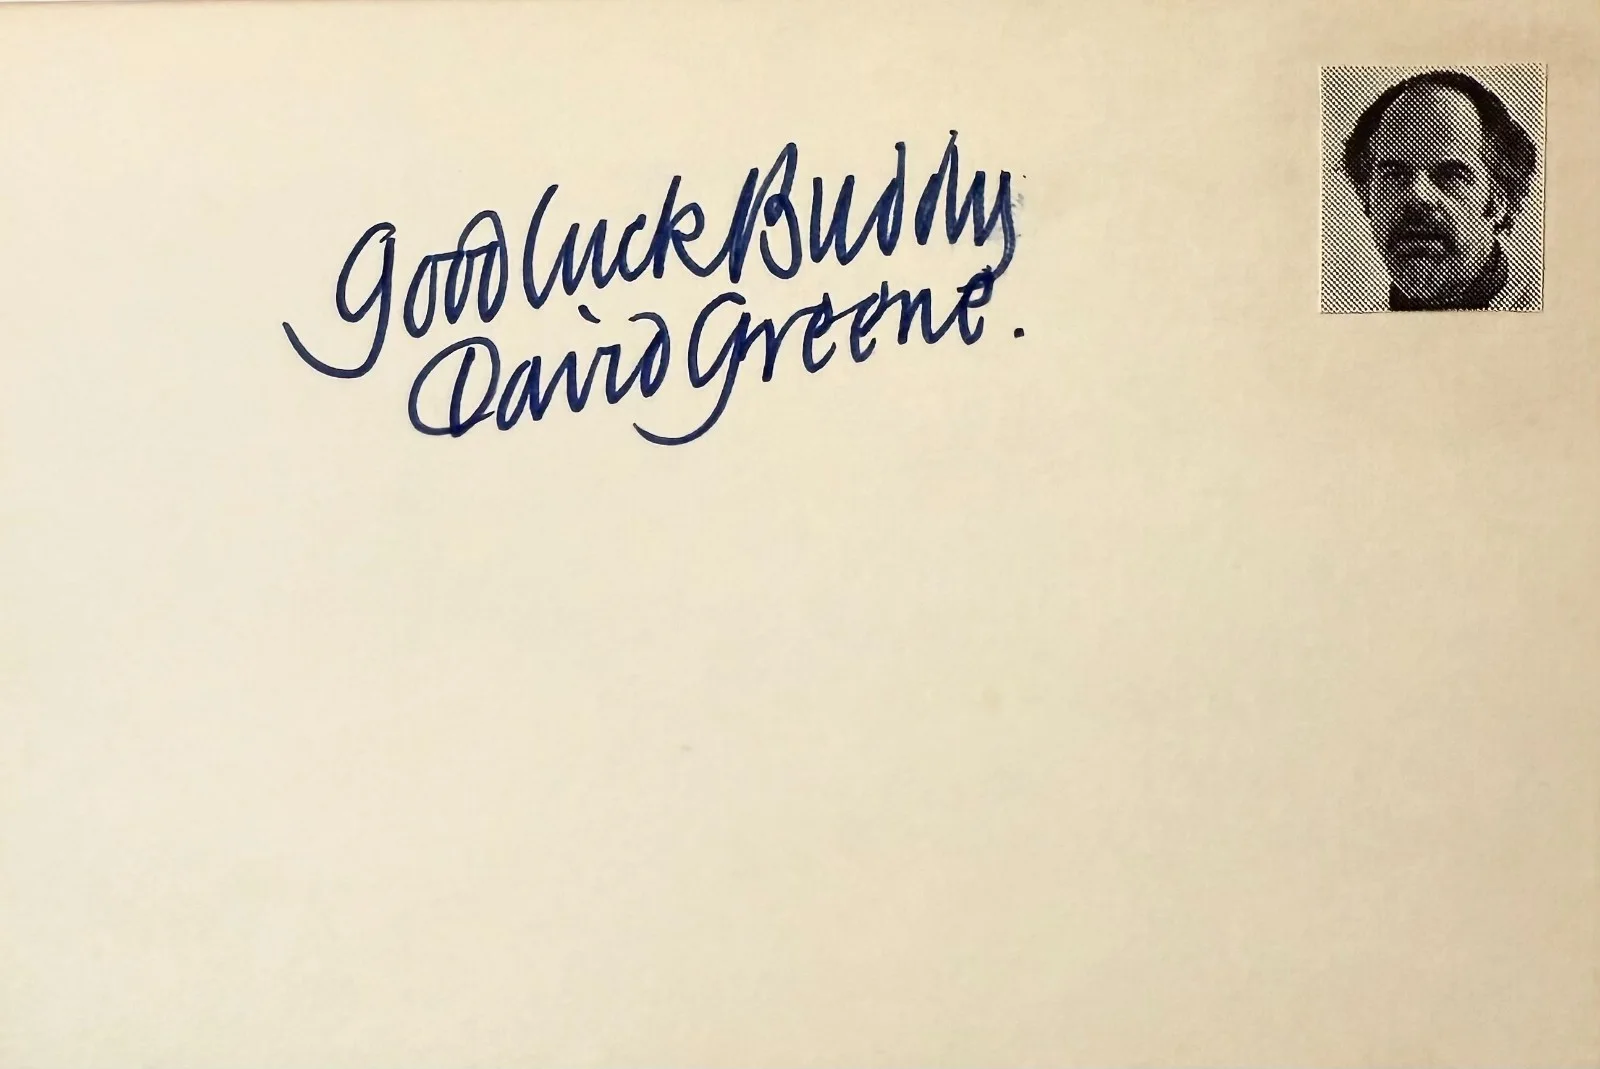 Good luck Buddy
David Greene.